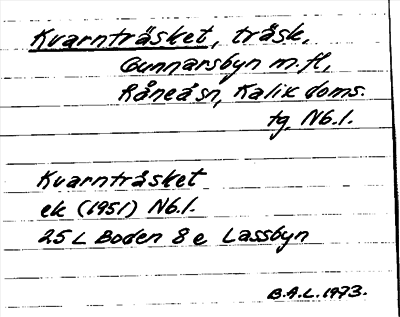 Kvarnträsket, träsk,
Gunnarsbyn m.fl.,
Råneå sn, Kalix doms.
tg, Nb.l.
Kvarnträsket
ek (1951) Nb.l.
25 L Boden 8 e Lassbyn
B.A.L. 1973.